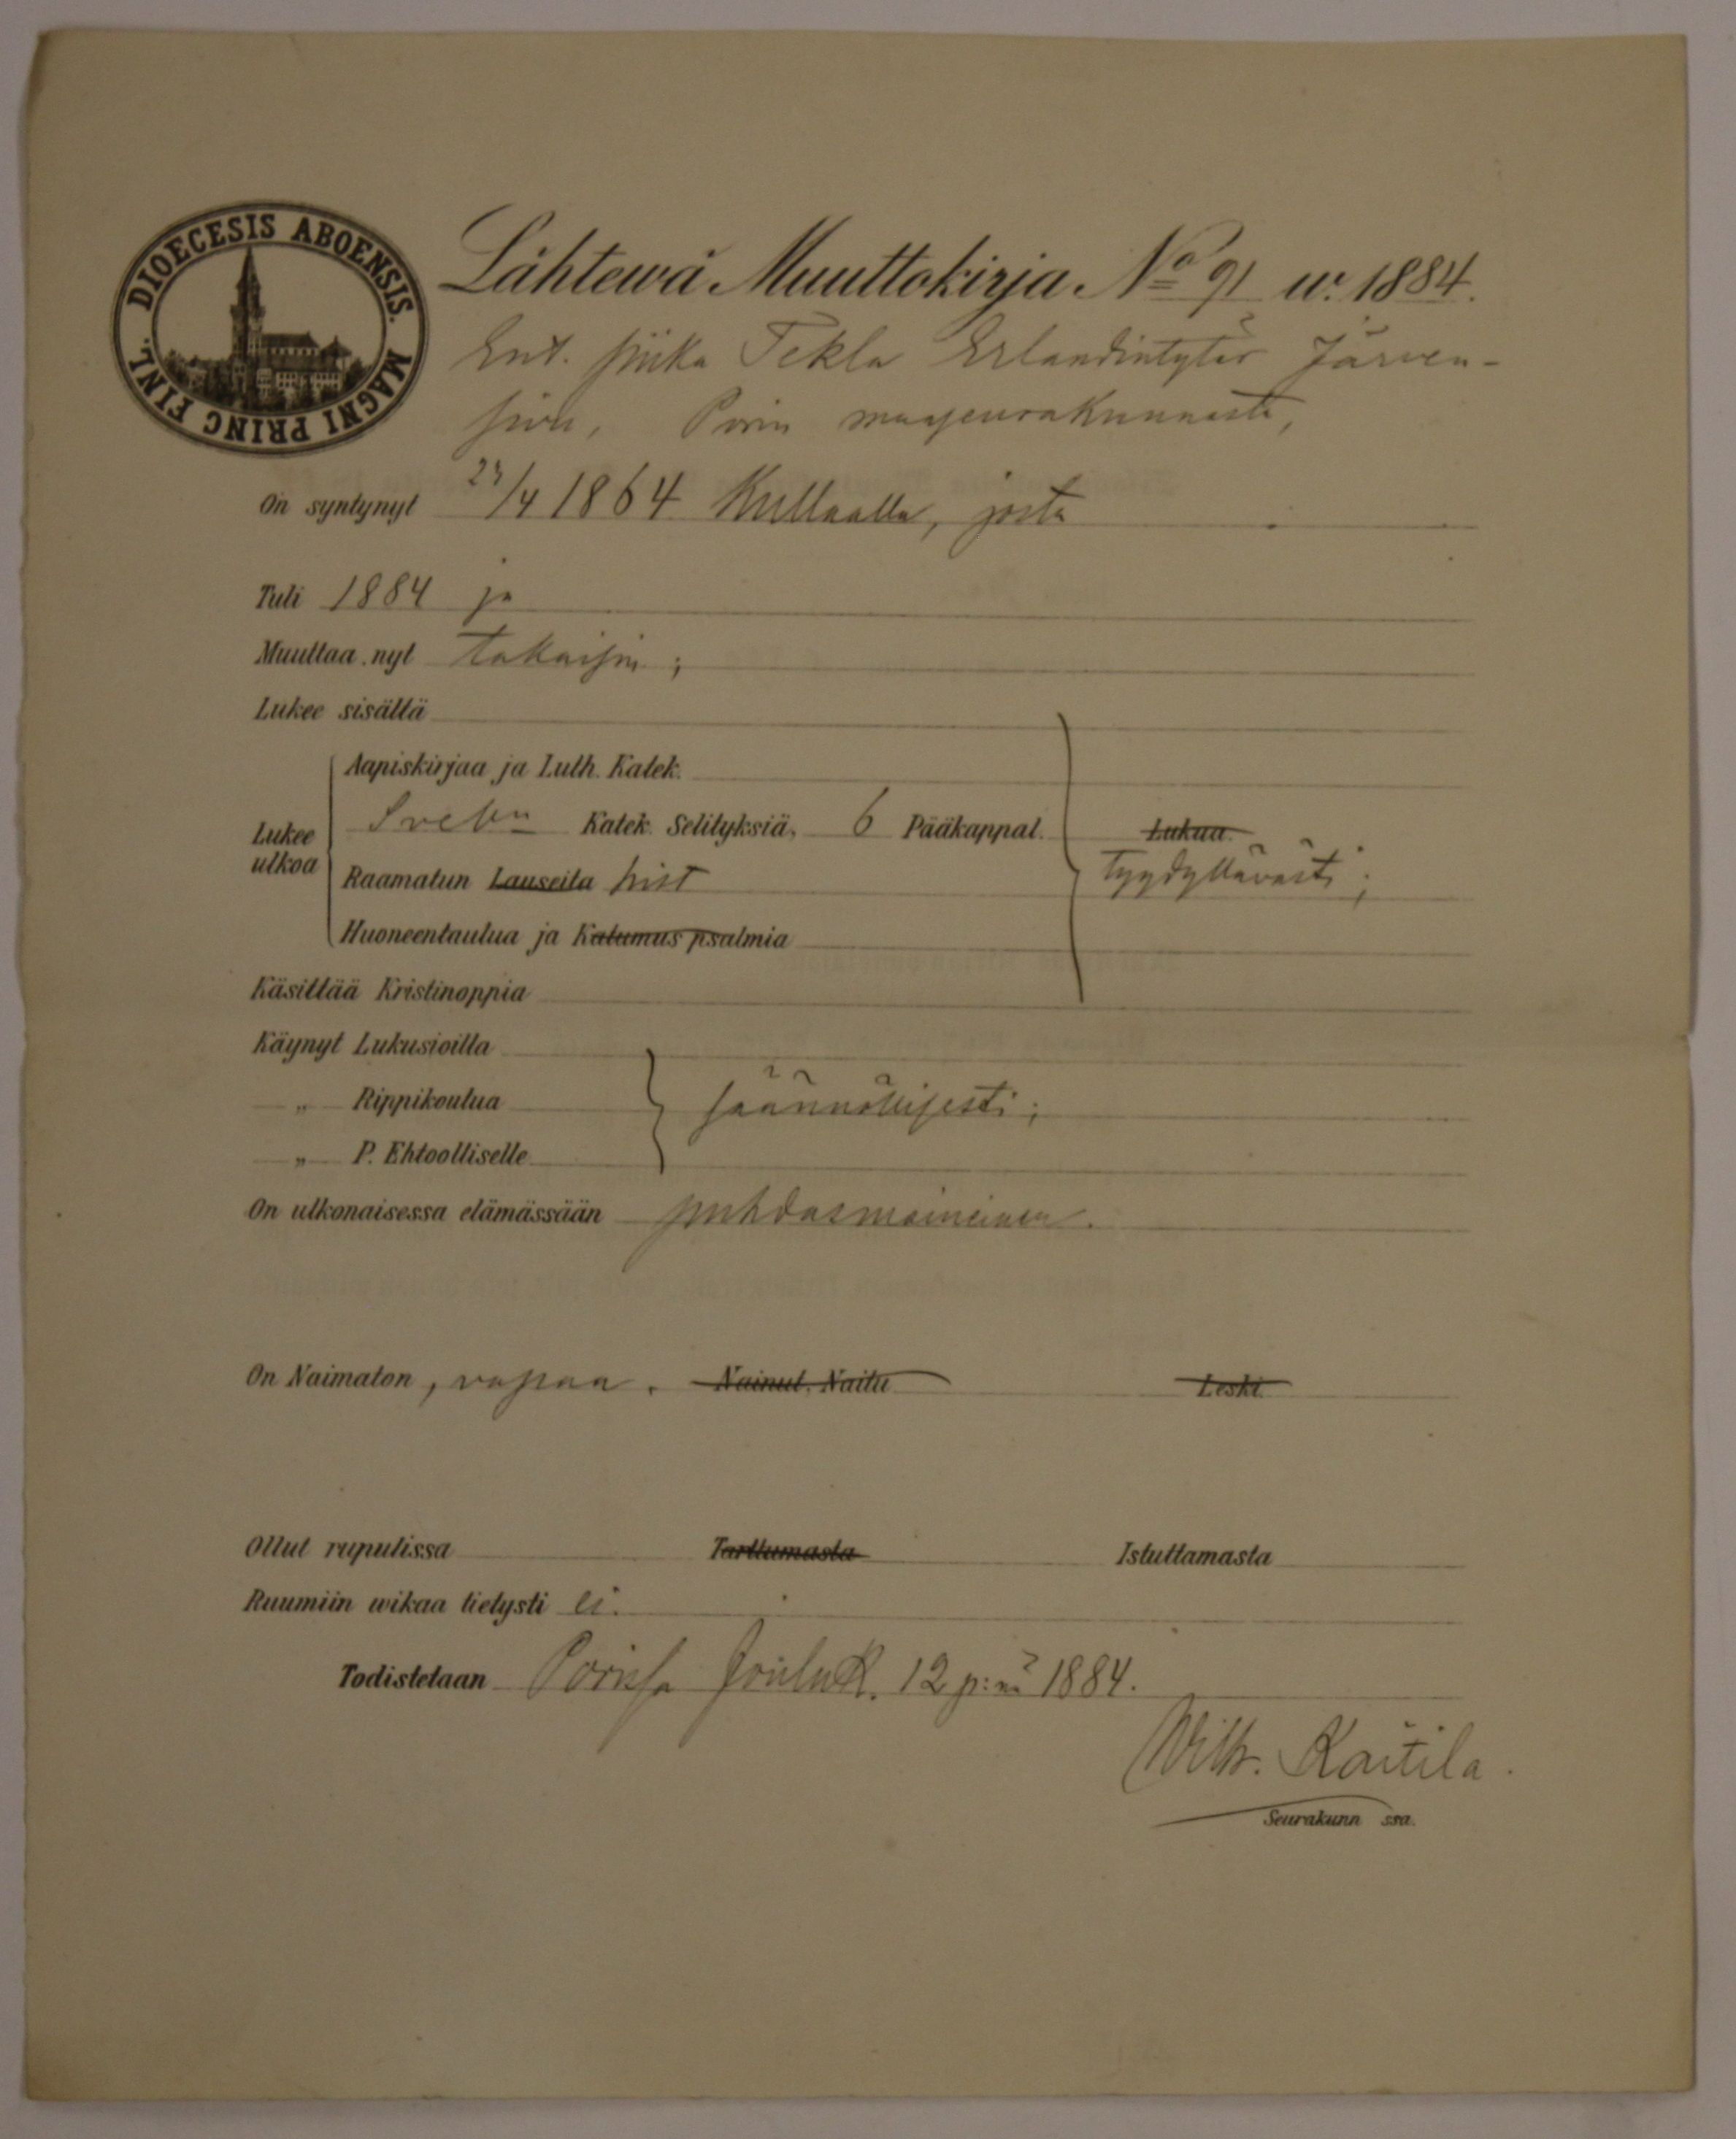 DIOECESIS ABOENSIS. MAGNI PRINC FINL.
Lähtewä Muuttokirja No 91 w. 1884.
Ent. piika Tekla Erlandintytär Järven-
sivu, Porin maaseurakunnasta,
On syntynyt /4 1864 Kullaalla, josta
Tuli 1884 ja
Muuttaa nyt takaisin;
Lukee sisältä
Aapiskirjaa ja Luth. Katek.
Lukee ulkoa Katek. Selityksiä, 6 Pääkappal. Lukua.
Raamatun Lauseita hist tyydyttävästi;
Huoneentaulua ja Katumus psalmia
Käsittää Kristinoppia
Käynyt Lukusioilla
„ Rippikoulua säännöllisesti;
„ P. Ehtoolliselle
On ulkonaisessa elämässään puhdasmaineinen.
On Naimaton, vapaa. Nainut, Naitu Leski.
Ollut rupulissa Tarttumasta Istuttamasta
Ruumiin wikaa tietysti ei.
Todistetaan Porissa Jouluk. 12 p:nä 1884.
Wilh. Kaitila.
Seurakunn ssa.